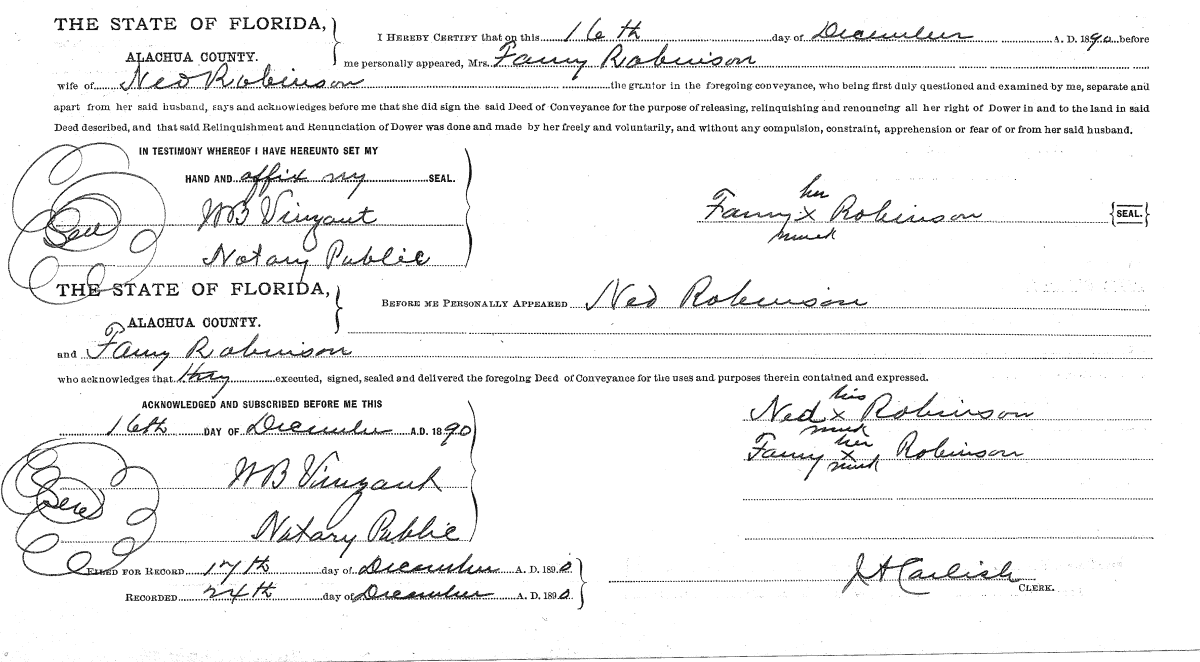 THE STATE OF FLORIDA,
ALACHUA COUNTY.
I HEREBY CERTIFY that on this 16th day of December A. D. 1890 before
me personally appeared, Mrs. Fanny Robinson
wife of Ned Robinson the grantor in the foregoing conveyance, who being first duly questioned and examined by me, separate and
apart from her said husband, says and acknowledges before me that she did sign the said Deed of Conveyance for the purpose of releasing, relinquishing and renouncing all her right of Dower in and to the land in said
Deed described, and that said Relinquishment and Renunciation of Dower was done and made by her freely and voluntarily, and without any compulsion, constraint, apprehension or fear of or from her said husband.
IN TESTIMONY WHEREOF I HAVE HEREUNTO SET MY
HAND AND affix my SEAL.
Seal
WB Vinzant
Notary Public
her
Fanny x Robinson {SEAL.}
mark
THE STATE OF FLORIDA,
ALACHUA COUNTY.
BEFORE ME PERSONALLY APPEARED Ned Robinson
and Fanny Robinson
who acknowledges that they executed, signed, sealed and delivered the foregoing Deed of Conveyance for the uses and purposes therein contained and expressed.
ACKNOWLEDGED AND SUBSCRIBED BEFORE ME THIS
16th DAY OF December A.D. 1890
Seal
WB Vinzant
Notary Public
his
Ned x Robinson
mark
her
Fanny x Robinson
mark
FILED FOR RECORD 17th day of December A. D. 1890
RECORDED 24th day of December A. D. 1890
CLERK.